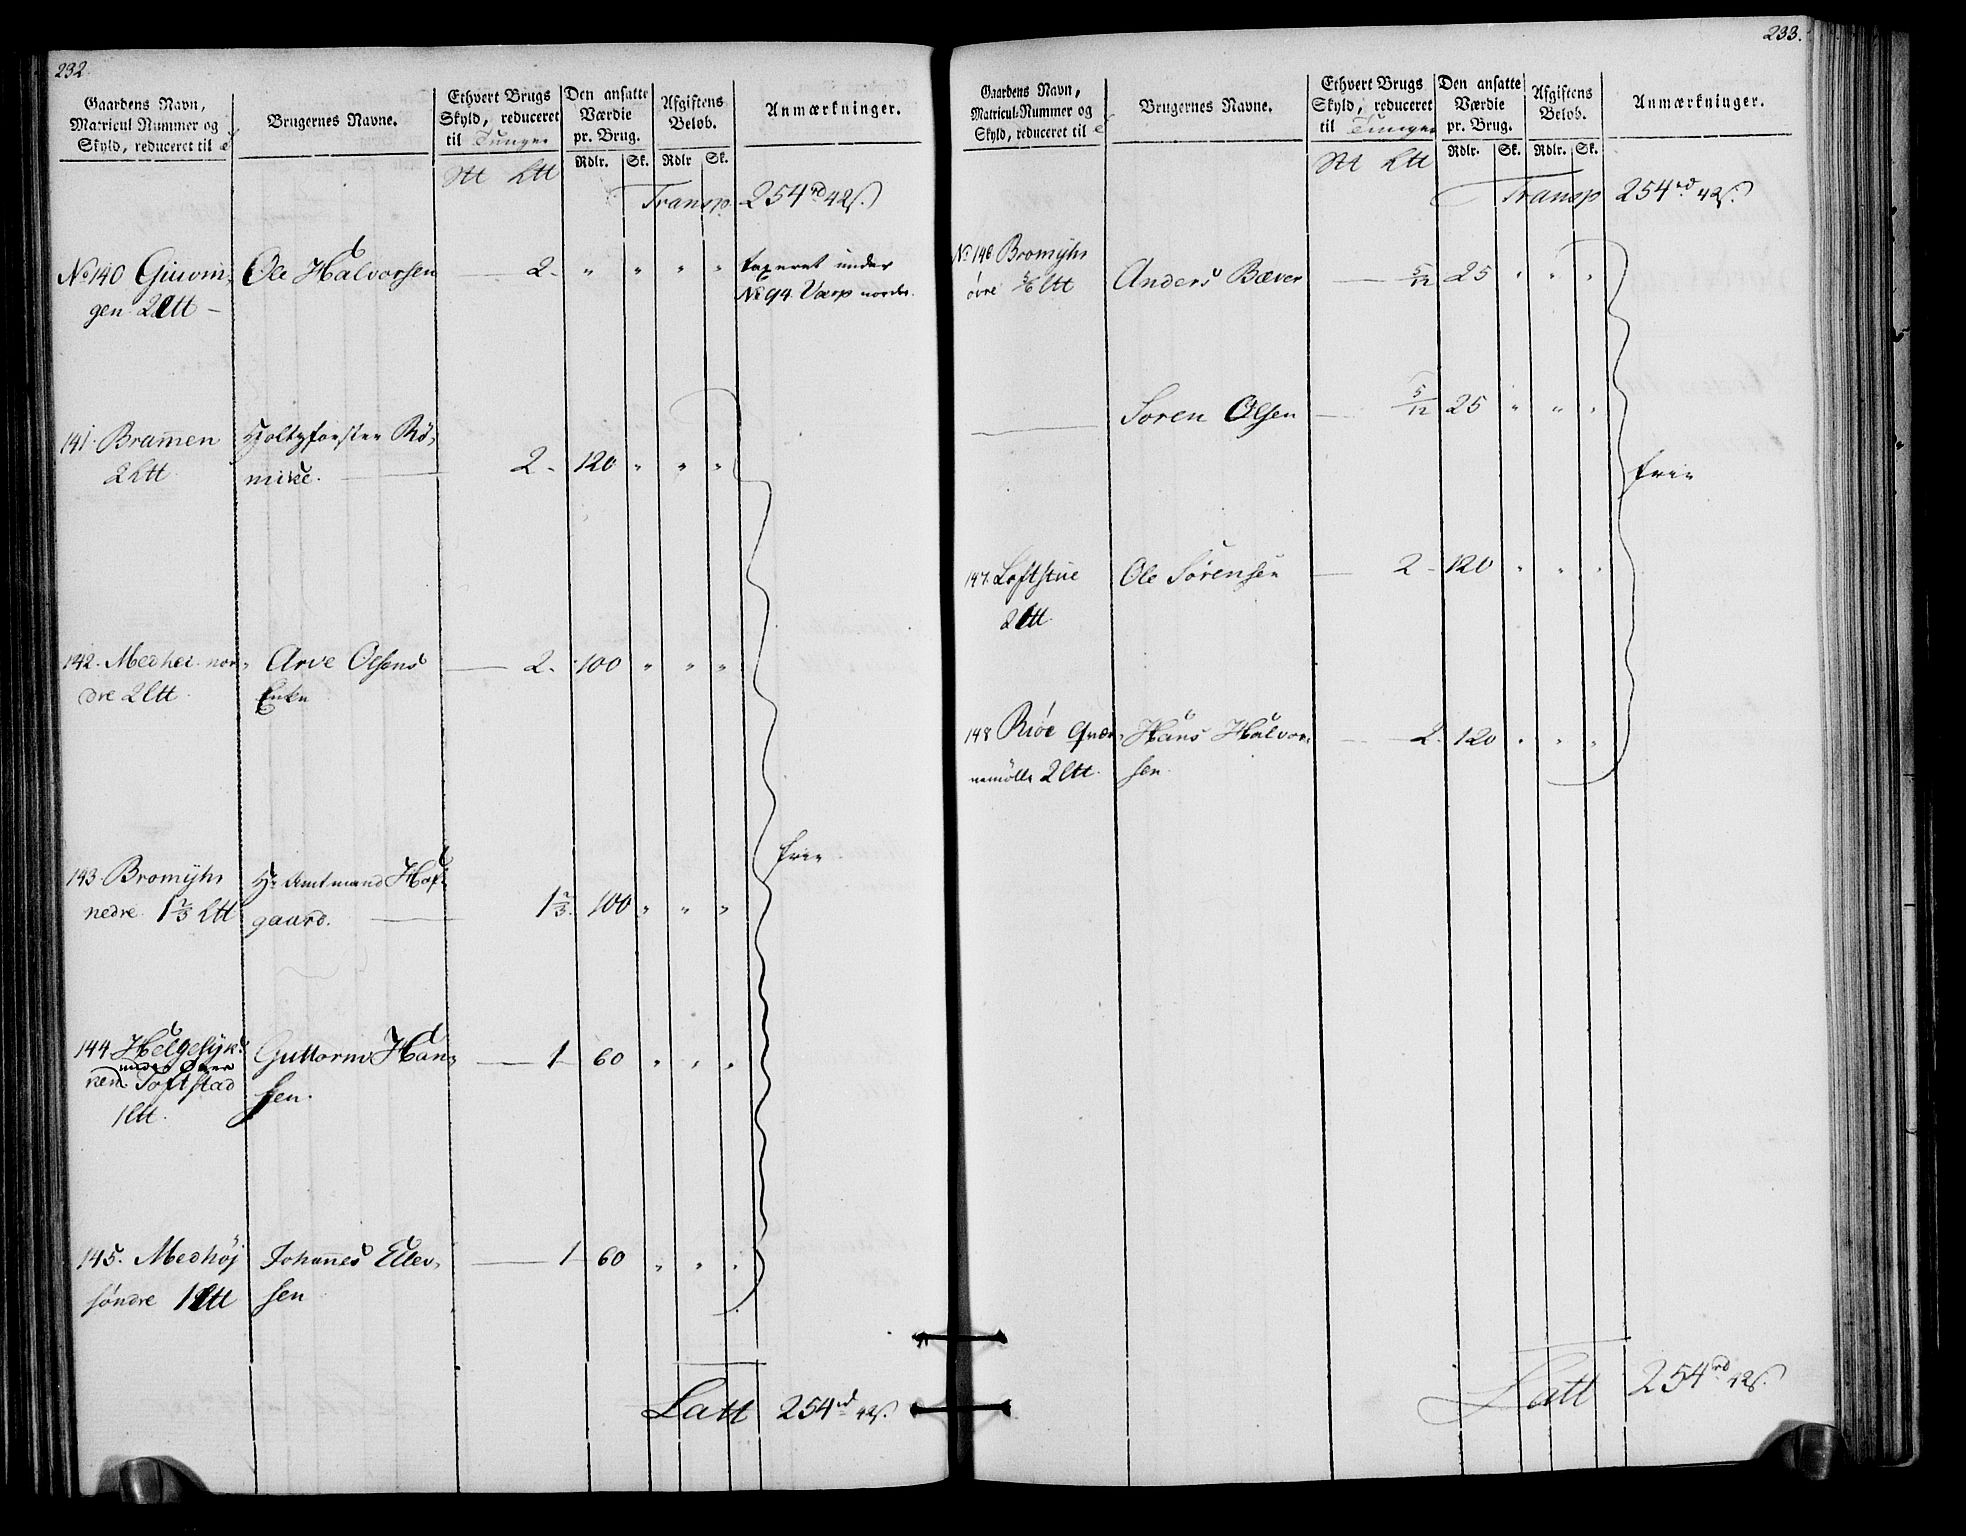 232.
Gaardens Navn,
Matricul Nummer og
Skyld, reduceret til
Brugernes Navne.
Ethvert Brugs
Skyld, reduceret
til Tunge
Den ansatte
Værdie
pr. Brug.
Rdlr. Sk.
Afgiftens
Beløb.
Rdlr Sk.
Anmærkninger.
Transp. 254 rd 42 s.
No 140
Ole Halvorsen 2. " " " "
taxeret under
No 94 Værp nordre.
gen 2 Ltt
141. Bramen
2 Ltt
2. 120 " " "
142. Medhei nor-
dre 2 Ltt.
Arve Olsens
Enke
2. 100 " " "
143. Bromyhr
nedre. 1 2/3 Ltt
Hr Amtmand Hof-
gaard.
1 2/3. 100 " " "
frie
144 Helgesyk
under
Toftstad
1 Ltt.
Guttorm Han-
sen.
1 60 " " "
145. Medhöj
söndre 1 Ltt
Johannes Ellev-
sen
1 60 " " "
Latt 254 rd 42 s.
233.
Gaardens Navn,
Matricul-Nummer og
Skyld, reduceret til
Brugernes Navne.
Ethvert Brugs
Skyld, reduceret
til Tunge
Den ansatte
Værdie
pr. Brug.
Rdlr. Sk.
Afgiftens
Beløb.
Rdlr. Sk.
Anmærkninger.
Transp 254 rd 42 s.
No 146 Bromyhr
øvre 5/6 Ltt
Anders Bæver 5/12 25 " " "
Soren Olsen 5/12 25 " " "
frie
147. Loftstue
2 Ltt.
Ole Sörensen 2 120 " " "
148 Riöe Qvær-
nemölle 2 Ltt.
Hans Halvor-
sen.
2. 120 " " "
Latt 254 rd 42 s.